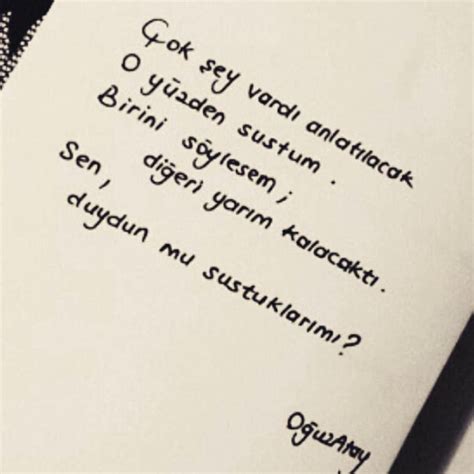 Çok şey vardı anlatılacak
O yüzden sustum.
Birini söylesem;
diğeri yarım kalacaktı.
Sen,
duydun mu sustuklarımı?
OğuzAtay